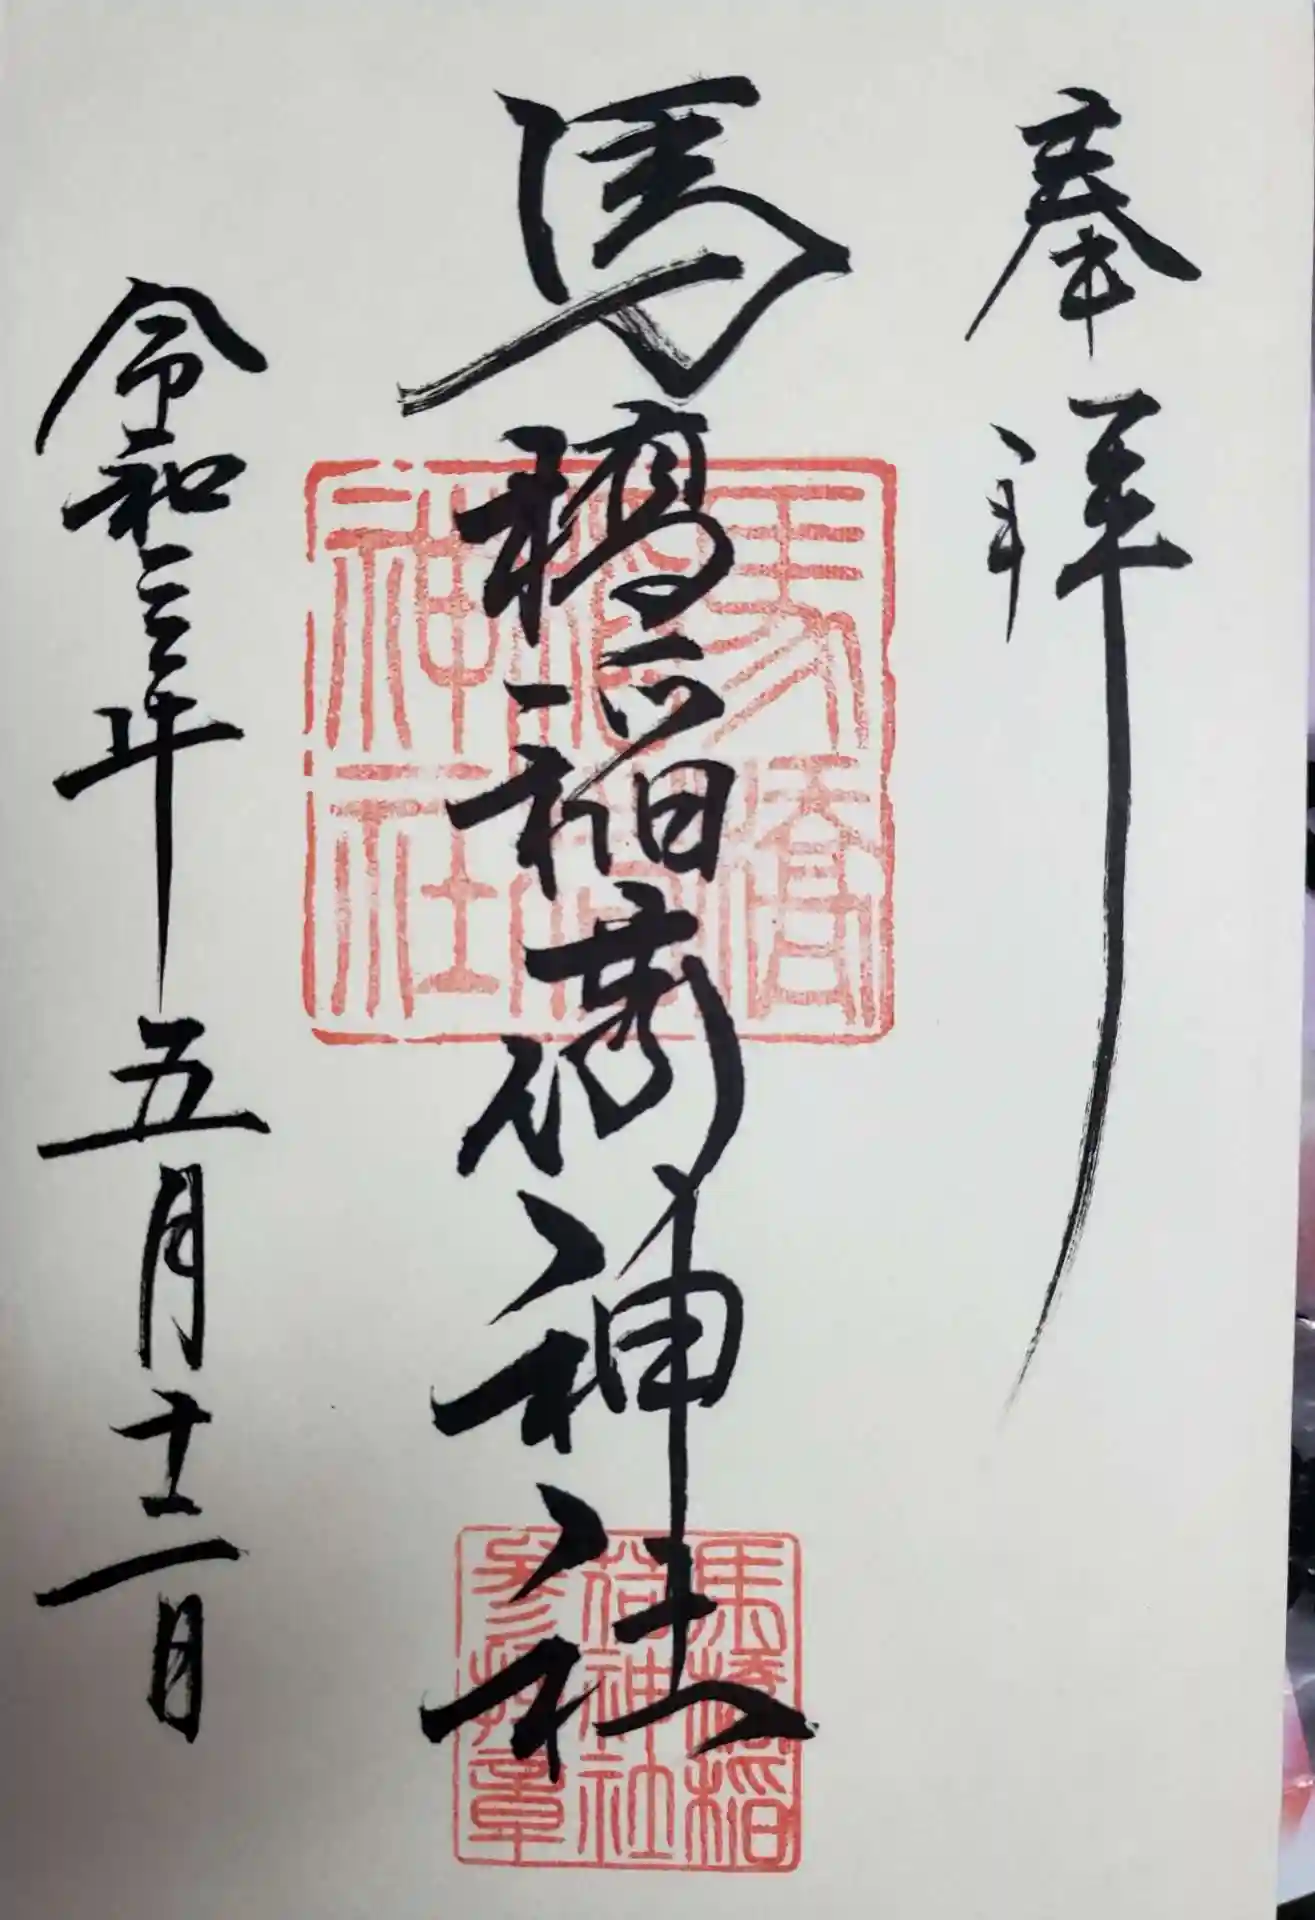 奉拝
馬橋稲荷神社
馬橋
稲荷
神社
馬橋稲
荷神社
参拝章
令和三年五月十二日